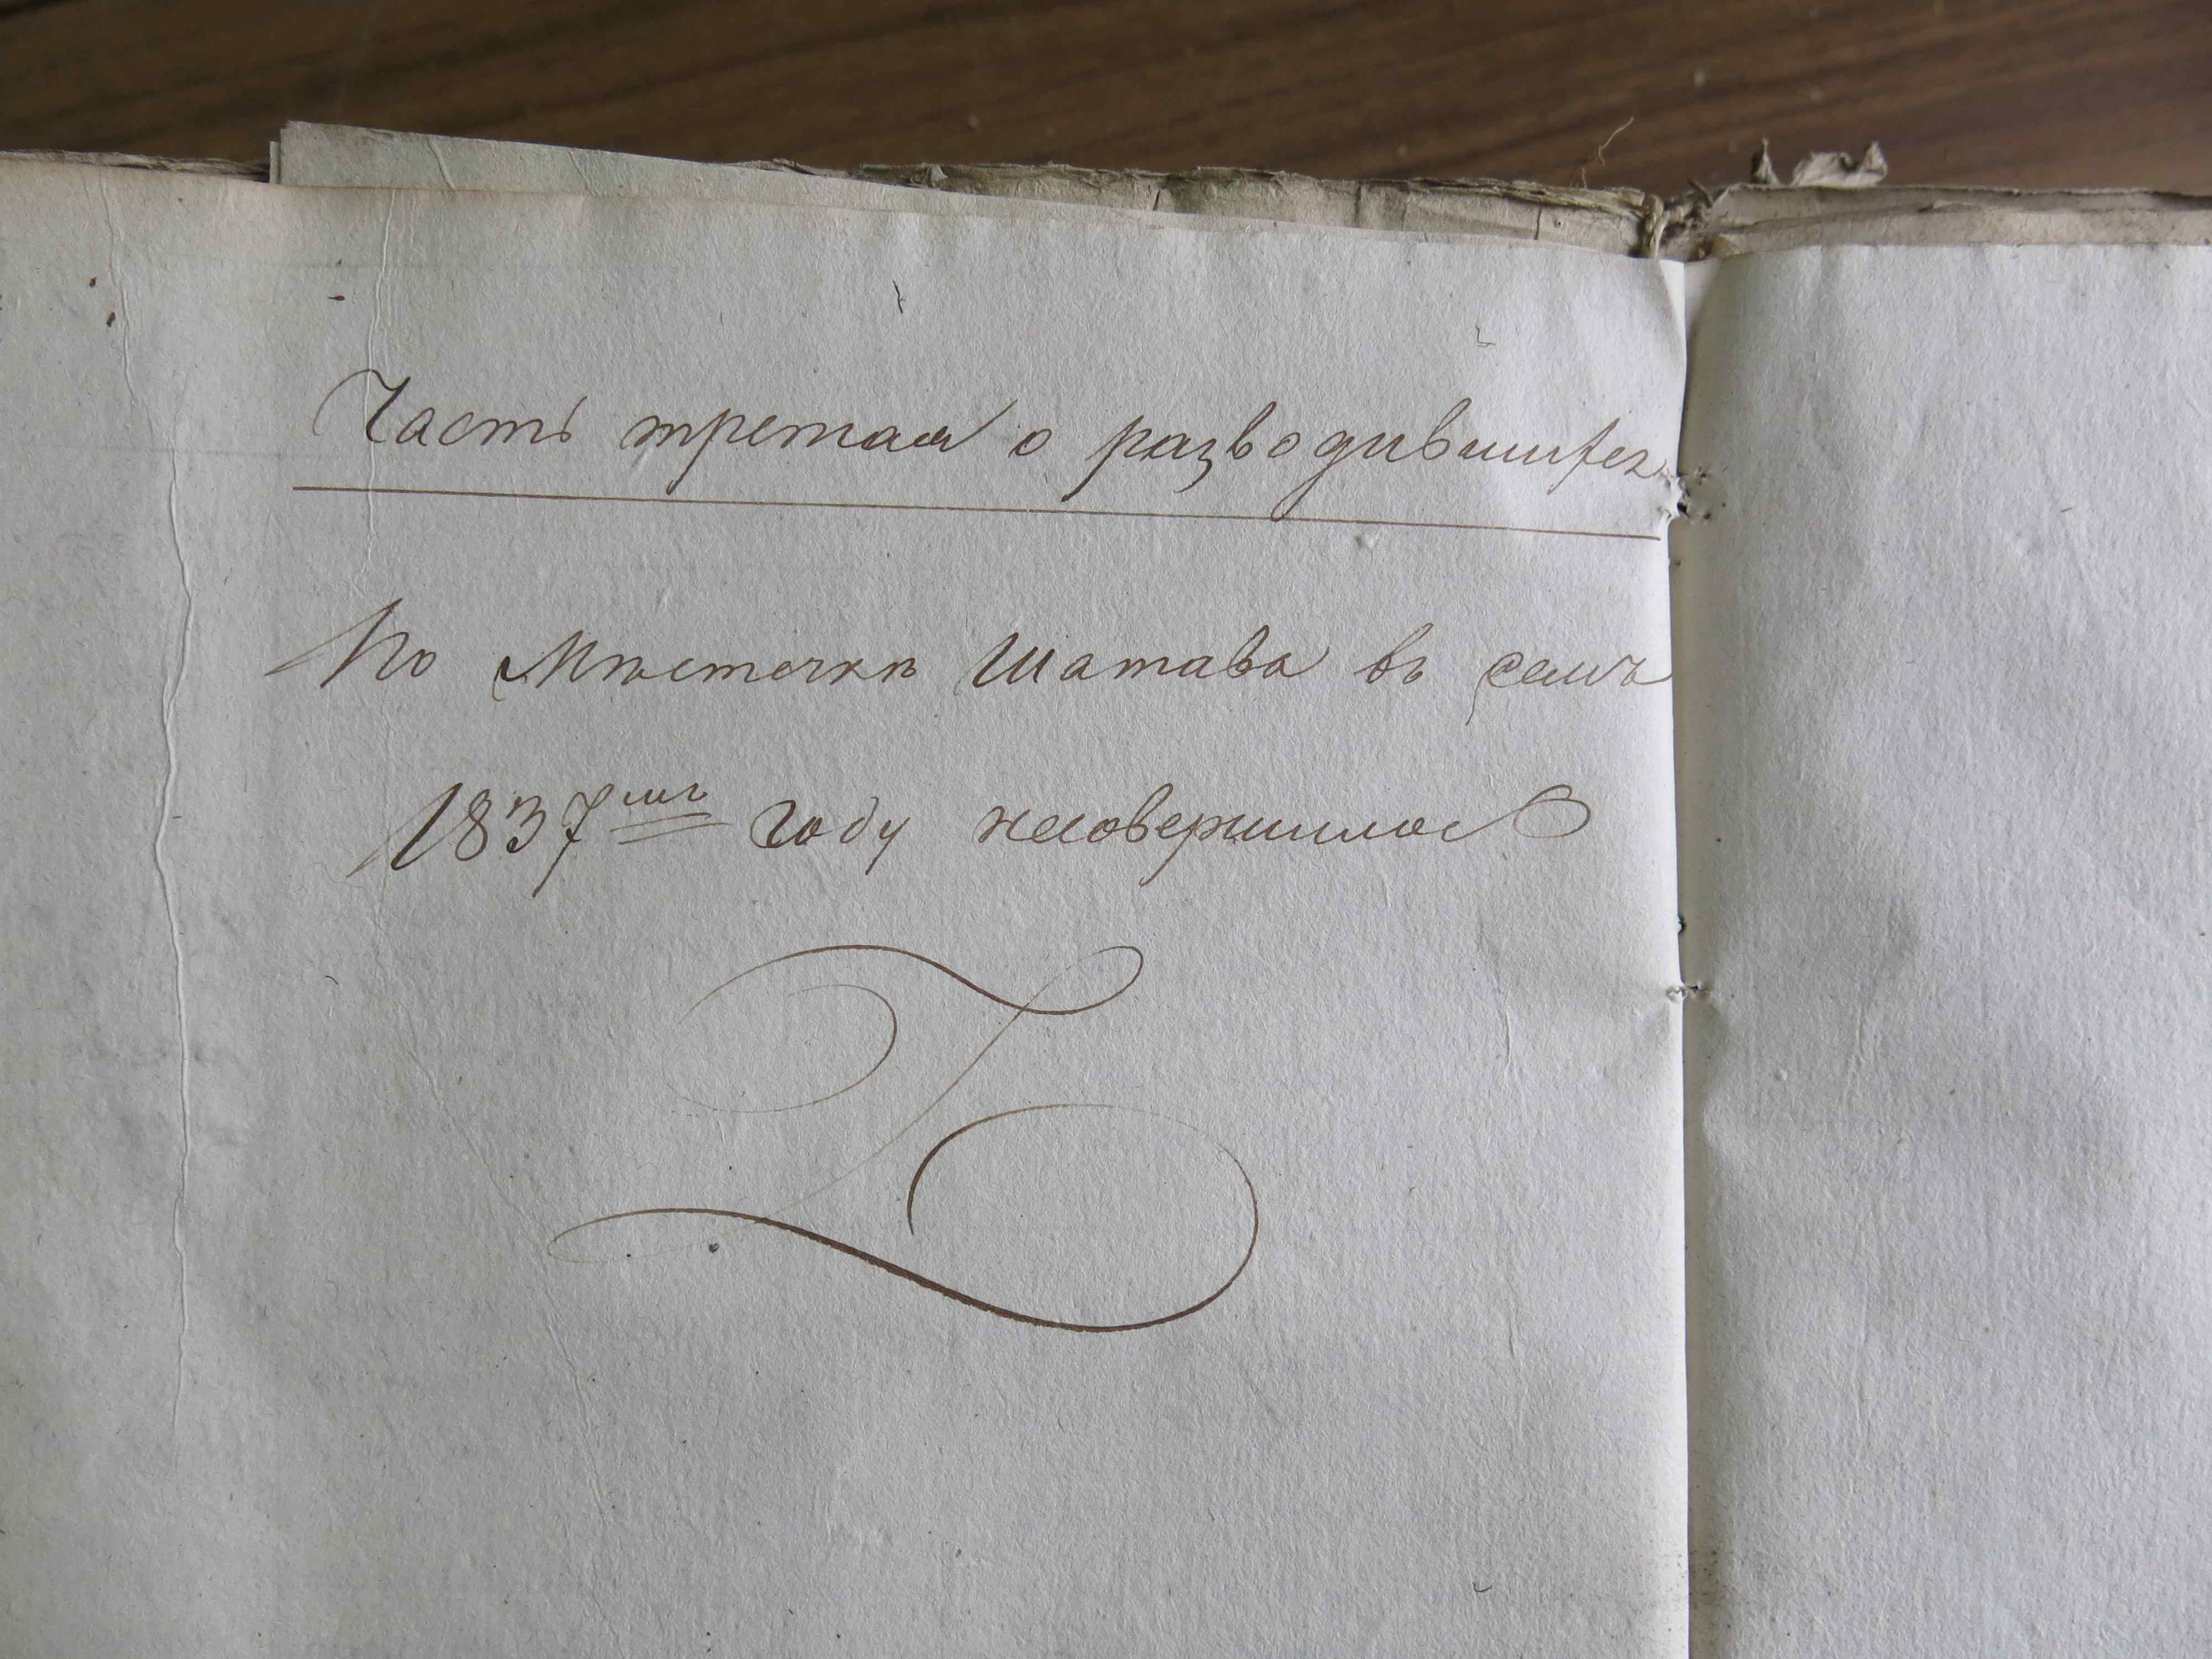 Часть третая о разводившихся
По Мѣстечкѣ Шатава въ семъ
1837мъ году несовершилось